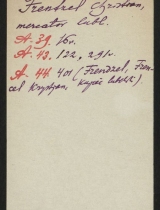 Frentzel Christian,
mercator lubl.
A. 39. 16v.
A. 43, 122, 291v.
A. 44. 401 (Frendzel, Fren-
cel Krystyan, kupiec lubelsk.)